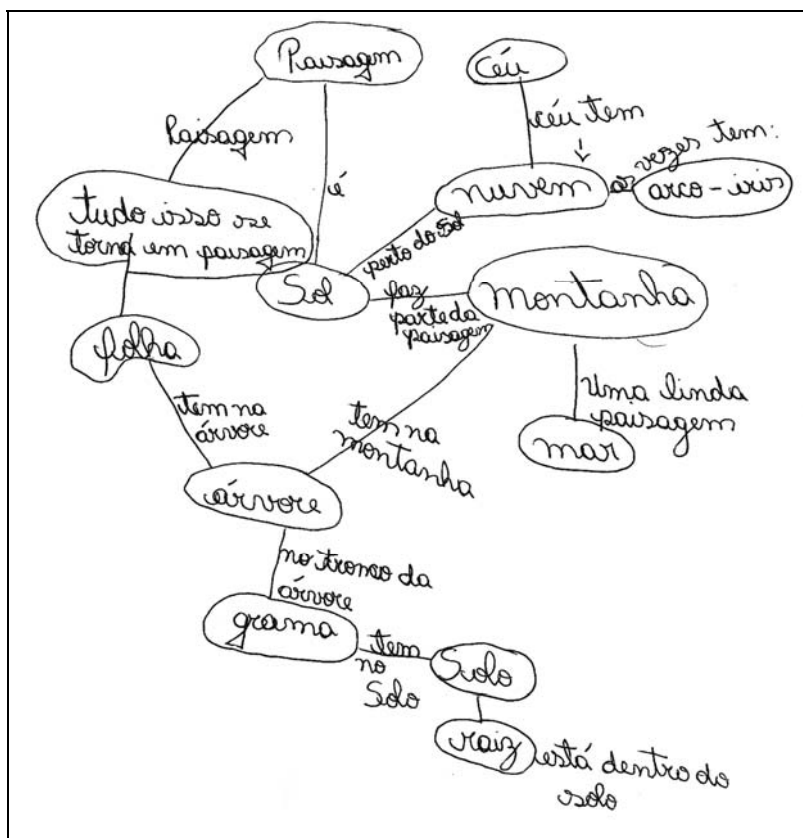 Paisagem
Céu
Paisagem
céu tem
é
às vezes tem:
nuvem
arco-iris
tudo isso se
torna em paisagem
perto do Sol
Sol
faz
parte da
paisagem
montanha
folha
Uma linda
paisagem
tem na
árvore
tem na
montanha
mar
árvore
no tronco da
árvore
grama
tem
no
Solo
Solo
raiz
está dentro do
solo